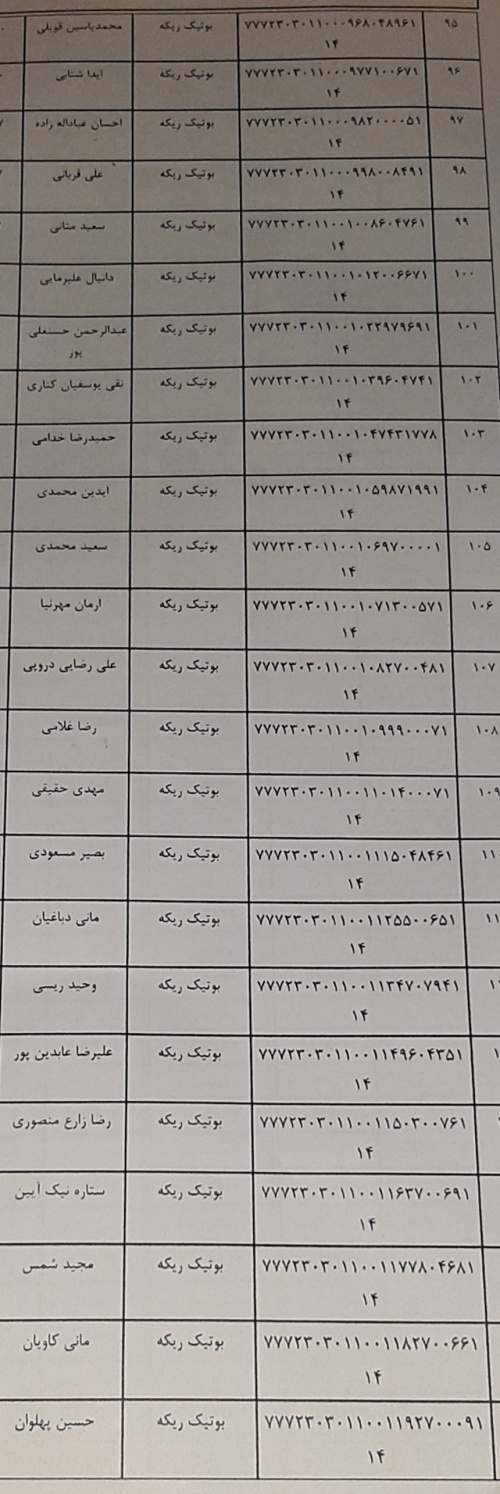 ۹۵ ۷۷۷۲۳۰۳۰۱۱۰۰۰۹۶۸۰۴۸۹۶۱ بوتیک ریکه محمدیاسین قویلی
۱۴
۹۶ ۷۷۷۲۳۰۳۰۱۱۰۰۰۹۷۷۱۰۰۶۷۱ بوتیک ریکه آیدا شتابی
۱۴
۹۷ ۷۷۷۲۳۰۳۰۱۱۰۰۰۹۸۲۰۰۰۰۵۱ بوتیک ریکه احسان عباداله زاده
۱۴
۹۸ ۷۷۷۲۳۰۳۰۱۱۰۰۰۹۹۸۰۰۸۴۹۱ بوتیک ریکه علی قربانی
۱۴
۹۹ ۷۷۷۲۳۰۳۰۱۱۰۰۱۰۰۸۶۰۴۷۶۱ بوتیک ریکه سعید متانی
۱۴
۱۰۰ ۷۷۷۲۳۰۳۰۱۱۰۰۱۰۱۲۰۰۶۶۷۱ بوتیک ریکه دانیال علیرمایی
۱۴
۱۰۱ ۷۷۷۲۳۰۳۰۱۱۰۰۱۰۲۲۹۷۹۶۹۱ بوتیک ریکه عبدالرحمن حسنعلی
۱۴ پور
۱۰۲ ۷۷۷۲۳۰۳۰۱۱۰۰۱۰۳۹۶۰۴۷۴۱ بوتیک ریکه نقی یوسفیان کناری
۱۴
۱۰۳ ۷۷۷۲۳۰۳۰۱۱۰۰۱۰۴۷۴۳۱۷۷۸ بوتیک ریکه حمیدرضا خدامی
۱۴
۱۰۴ ۷۷۷۲۳۰۳۰۱۱۰۰۱۰۵۹۸۷۱۹۹۱ بوتیک ریکه آیدین محمدی
۱۴
۱۰۵ ۷۷۷۲۳۰۳۰۱۱۰۰۱۰۶۹۷۰۰۰۰۱ بوتیک ریکه سعید محمدی
۱۴
۱۰۶ ۷۷۷۲۳۰۳۰۱۱۰۰۱۰۷۱۳۰۰۵۷۱ بوتیک ریکه آرمان مهرنیا
۱۴
۱۰۷ ۷۷۷۲۳۰۳۰۱۱۰۰۱۰۸۲۷۰۰۴۸۱ بوتیک ریکه علی رضایی درویی
۱۴
۱۰۸ ۷۷۷۲۳۰۳۰۱۱۰۰۱۰۹۹۹۰۰۰۷۱ بوتیک ریکه رضا غلامی
۱۴
۱۰۹ ۷۷۷۲۳۰۳۰۱۱۰۰۱۱۰۱۴۰۰۰۷۱ بوتیک ریکه مهدی حقیقی
۱۴
۱۱ ۷۷۷۲۳۰۳۰۱۱۰۰۱۱۱۵۰۴۸۴۶۱ بوتیک ریکه بصیر مسعودی
۱۴
۱۱ ۷۷۷۲۳۰۳۰۱۱۰۰۱۱۲۵۵۰۰۶۵۱ بوتیک ریکه مانی دباغیان
۱۴
۷۷۷۲۳۰۳۰۱۱۰۰۱۱۳۴۷۰۷۹۴۱ بوتیک ریکه وحید ریسی
۱۴
۷۷۷۲۳۰۳۰۱۱۰۰۱۱۴۹۶۰۴۳۵۱ بوتیک ریکه علیرضا عابدین پور
۱۴
۷۷۷۲۳۰۳۰۱۱۰۰۱۱۵۰۳۰۰۷۶۱ بوتیک ریکه رضا زارع منصوری
۱۴
۷۷۷۲۳۰۳۰۱۱۰۰۱۱۶۳۷۰۰۶۹۱ بوتیک ریکه ستاره نیک آیین
۱۴
۷۷۷۲۳۰۳۰۱۱۰۰۱۱۷۷۸۰۴۶۸۱ بوتیک ریکه مجید شمس
۱۴
۷۷۷۲۳۰۳۰۱۱۰۰۱۱۸۲۷۰۰۶۶۱ بوتیک ریکه مانی کاویان
۱۴
۷۷۷۲۳۰۳۰۱۱۰۰۱۱۹۲۷۰۰۰۹۱ بوتیک ریکه حسین پهلوان
۱۴